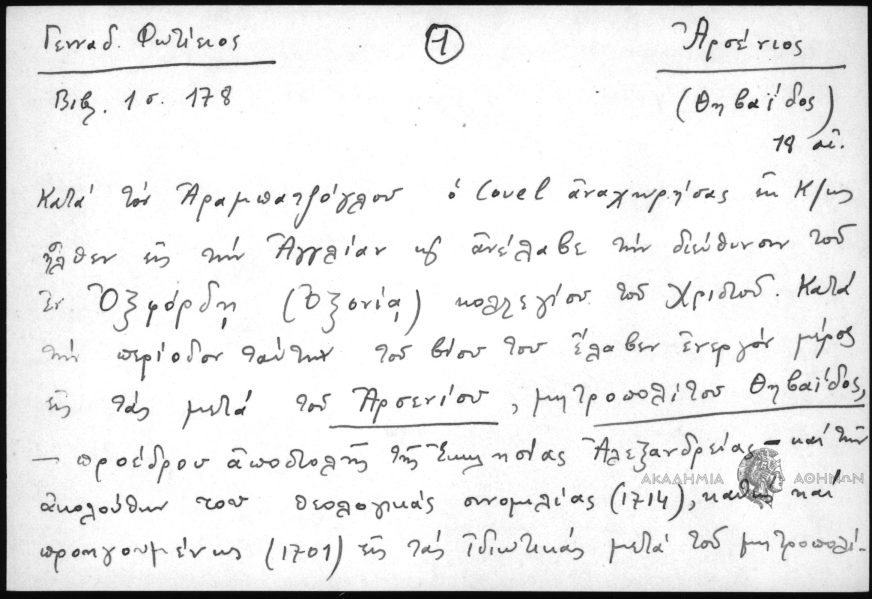 Γενναδ. Φωτίειος
1
Ἀρσένιος
Βιβλ. 1 σ. 178
(Θηβαΐδος)
18 αἰ.
Κατά τόν Ἀραμπατζόγλου ὁ Covel ἀναχωρήσας ἐκ Κ/πως
ἦλθεν εἰς τήν Ἀγγλίαν κ' ἀνέλαβε τήν διεύθυνσιν τοῦ
ἐν Ὀξφόρδῃ (Ὀξονίᾳ) κολλεγίου τοῦ Χριστοῦ. Κατά
τήν περίοδον ταύτην τοῦ βίου του ἔλαβεν ἐνεργόν μέρος
εἰς τάς μετά τοῦ Ἀρσενίου, μητροπολίτου Θηβαΐδος,
– προέδρου ἀποστολῆς τῆς Ἐκκλησίας Ἀλεξανδρείας – καί τήν
ΑΚΑΔΗΜΙΑ ΑΘΗΝΩΝ
ἀκολούθων του θεολογικάς συνομιλίας (1714), καθώς καί
προηγουμένως (1701) εἰς τάς ἰδιωτικάς μετά τοῦ μητροπολί-